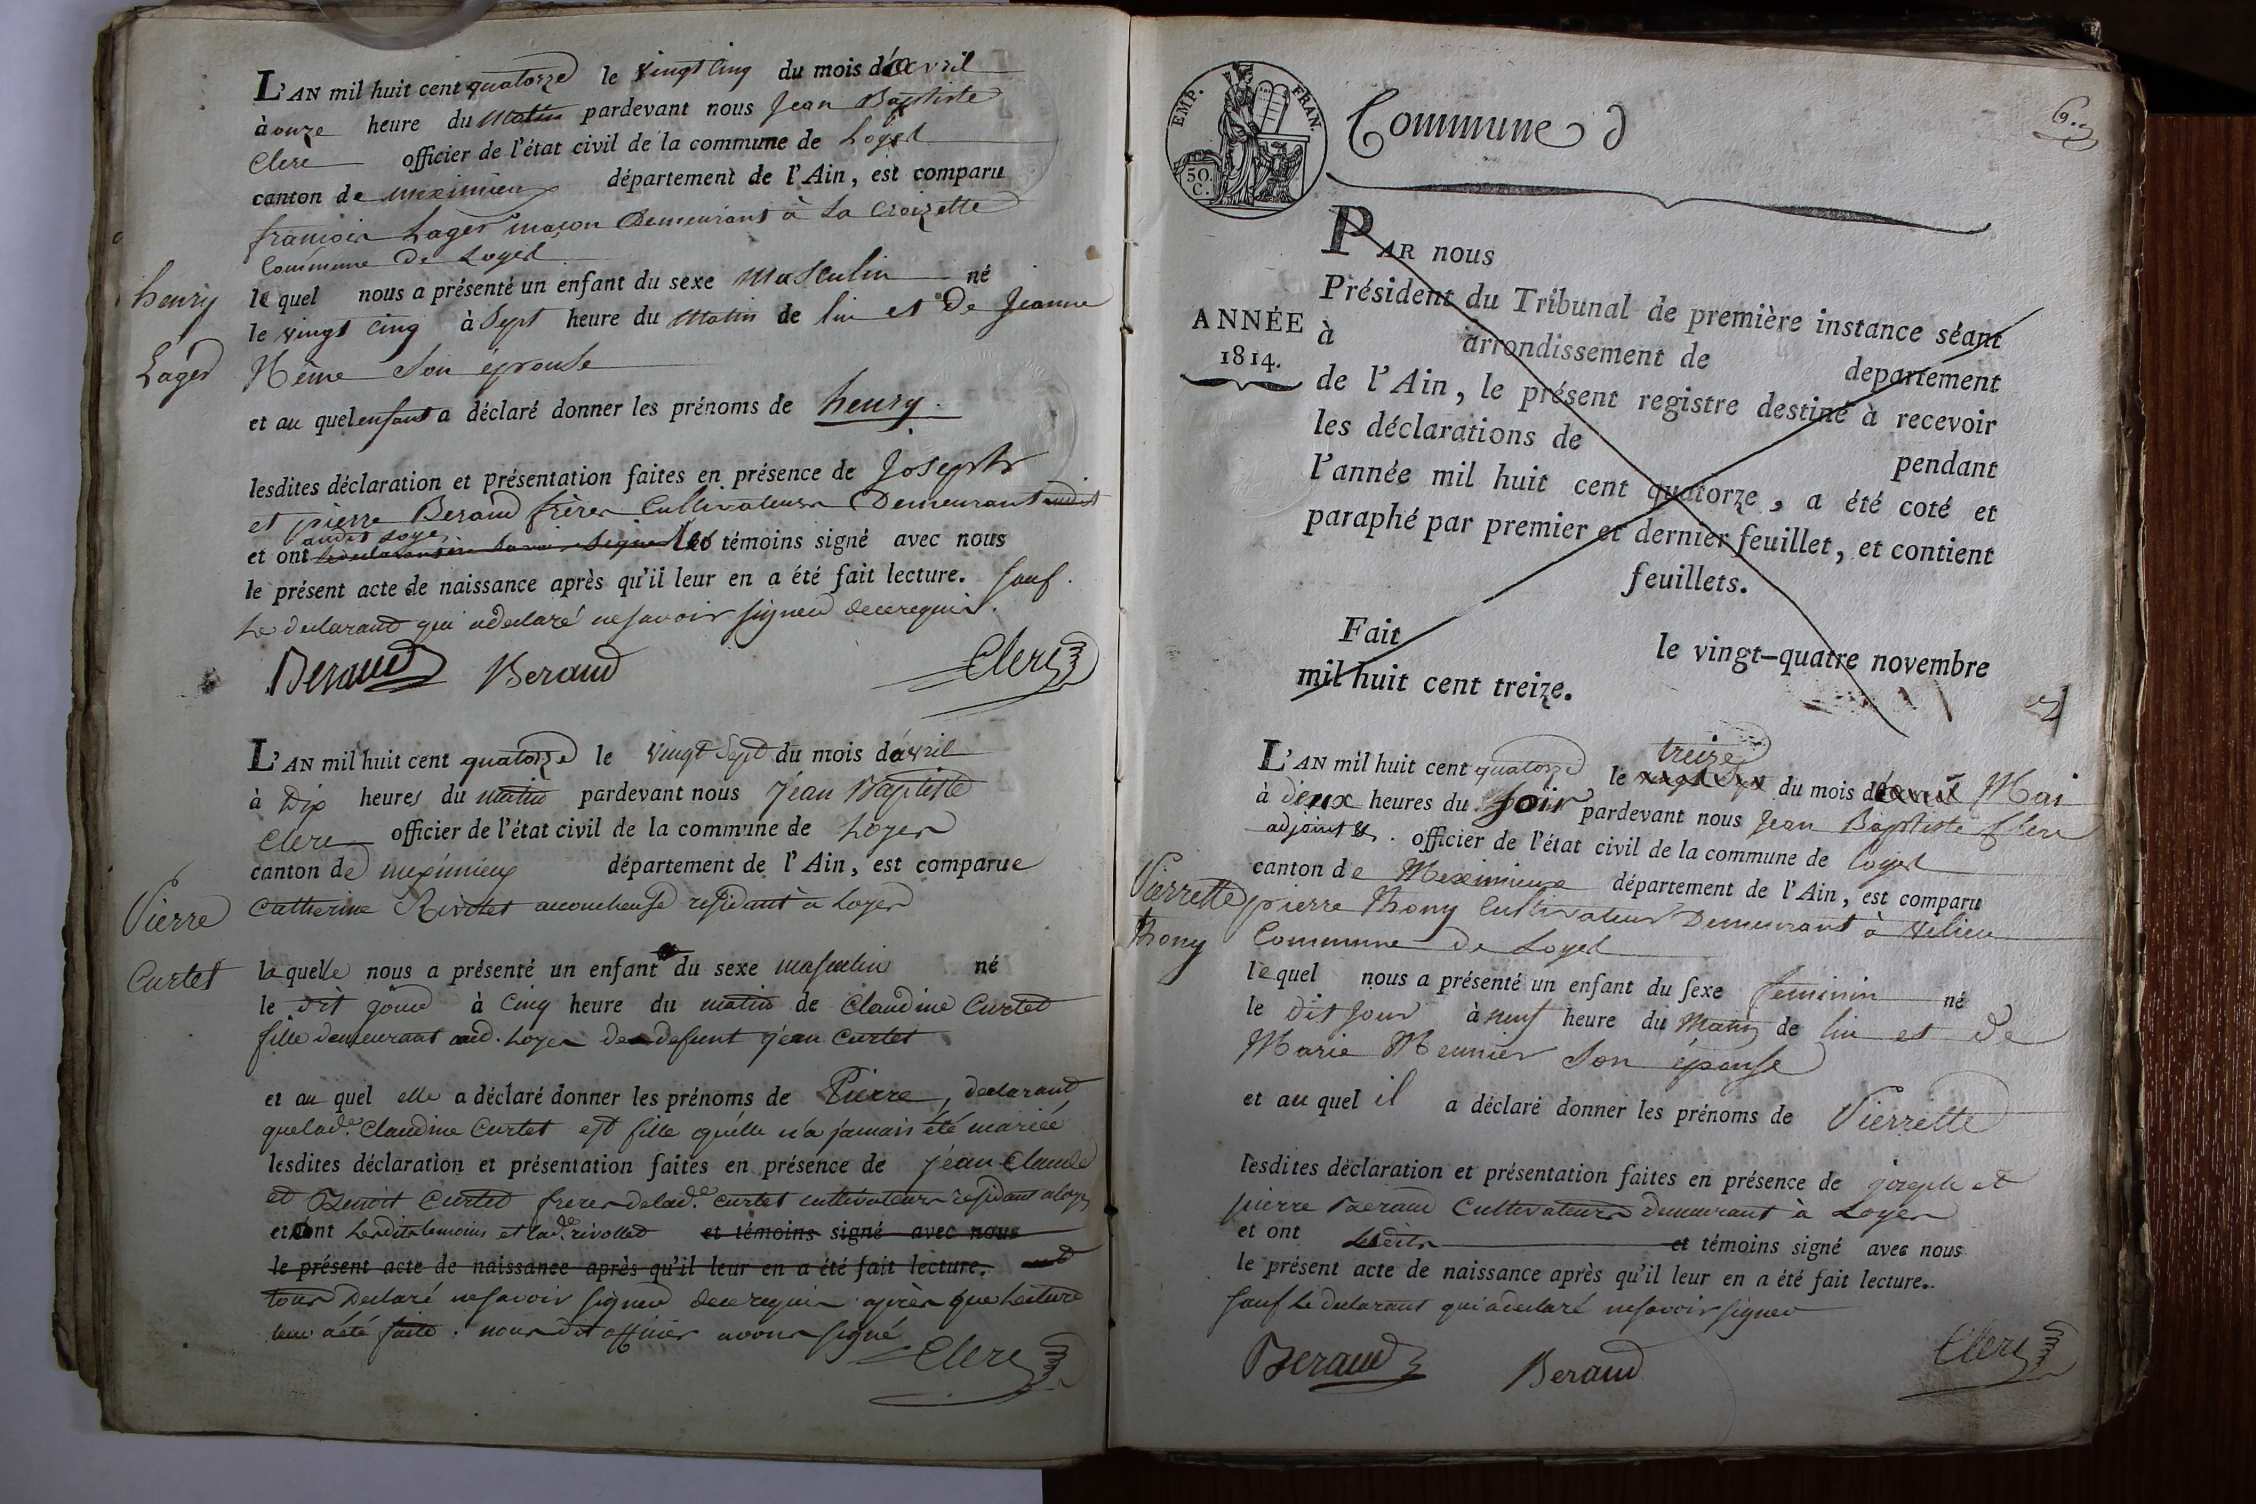 L'AN mil huit cent quatorze le vingt cinq du mois d'avril
à onze heure du matin pardevant nous Jean Baptiste
Clerc officier de l'état civil de la commune de Loyes
canton de meximieux département de l'Ain, est comparu
francois Lager macon Demeurant à La Croizette
Commune De Loyes
henry
le quel nous a présenté un enfant du sexe Masculin né
le vingt cinq à Sept heure du Matin de lui et De Jeanne
Lager
Même Son épouse
et au quel enfant a déclaré donner les prénoms de henry.
lesdites déclaration et présentation faites en présence de Joseph
et pierre Beraud frères Cultivateurs Demeurant audit
audit Loye
et ont les témoins signé avec nous
le présent acte de naissance après qu'il leur en a été fait lecture. sauf
Le declarant qui a declaré ne savoir signer de ce requis.
Beraud Beraud Clerc
L'AN mil huit cent quatorze le vingt Sept du mois d'avril
à Dix heures du matin pardevant nous Jean Baptiste
Clerc officier de l'état civil de la commune de Loyes
canton de meximieux département de l'Ain, est comparue
Catherine Rivolet accoucheuse residant à Loyes
Pierre
Curtet
la quelle nous a présenté un enfant du sexe masculin né
le dit jour à Cinq heure du matin de Claudine Curtet
fille demeurant aud. Loyes de defunt jean Curtet
et au quel elle a déclaré donner les prénoms de Pierre, declarant
que lade. Claudine Curtet est fille qu'elle n'a jamais été mariée
lesdites déclaration et présentation faites en présence de jean Claude
et Benoit Curtet freres de lade. Curtet cultivateurs residant a Loyes
et ont Lesdits temoins et lade. rivollet et témoins signé avec nous
le présent acte de naissance après qu'il leur en a été fait lecture.
tous Declaré ne savoir signer de ce requis après que Lecture
leur a été faite. nous dit officier avons signé
Clerc
EMP. FRAN.
50. C.
Commune d
6.
PAR nous
Président du Tribunal de première instance séant
ANNÉE
1814.
à arrondissement de departement
de l'Ain, le présent registre destiné à recevoir
les déclarations de pendant
l'année mil huit cent quatorze, a été coté et
paraphé par premier et dernier feuillet, et contient
feuillets.
Fait le vingt-quatre novembre
mil huit cent treize.
treize
L'AN mil huit cent quatorze le vingt Sept du mois d'avril Mai
à deux heures du soir pardevant nous Jean Baptiste Clerc
adjoint & officier de l'état civil de la commune de Loyes
canton de Meximieux département de l'Ain, est comparu
Pierrette
thony
pierre thony Cultivateur Demeurant à vilieu
Commune De Loyes
le quel nous a présenté un enfant du sexe feminin né
le dit Jour à neuf heure du Matin de lui et De
Marie Meunier Son épouse
et au quel il a déclaré donner les prénoms de Pierrette
lesdites déclaration et présentation faites en présence de joseph et
pierre Beraud Cultivateurs demeurant à Loyes
et ont lesdits et témoins signé avec nous
le présent acte de naissance après qu'il leur en a été fait lecture.
sauf Le declarant qui a declaré ne savoir signer
Beraud Beraud Clerc